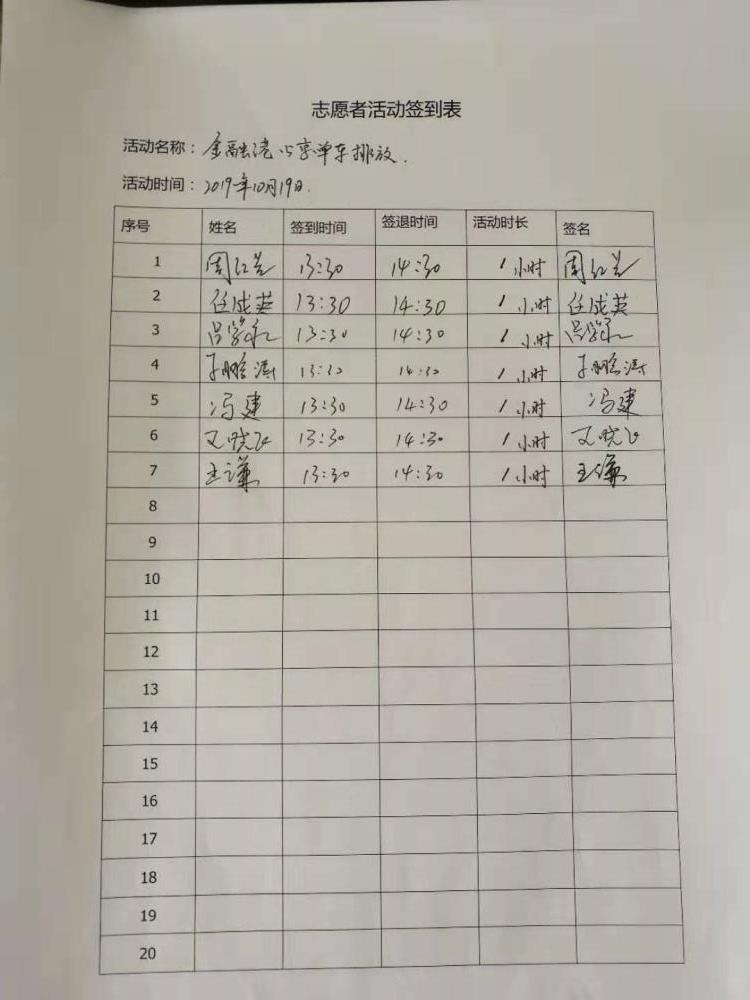 志愿者活动签到表
活动名称：金融港共享单车排放.
活动时间：2019年10月19日.
序号 姓名 签到时间 签退时间 活动时长 签名
1 周红兰 13:30 14:30 1小时 周红兰
2 任成英 13:30 14:30 1小时 任成英
3 13:30 14:30 1小时
4 于鹏涛 13:30 14:30 1小时 于鹏涛
5 冯建 13:30 14:30 1小时 冯建
6 艾晓飞 13:30 14:30 1小时 艾晓飞
7 王谦 13:30 14:30 1小时 王谦
8
9
10
11
12
13
14
15
16
17
18
19
20